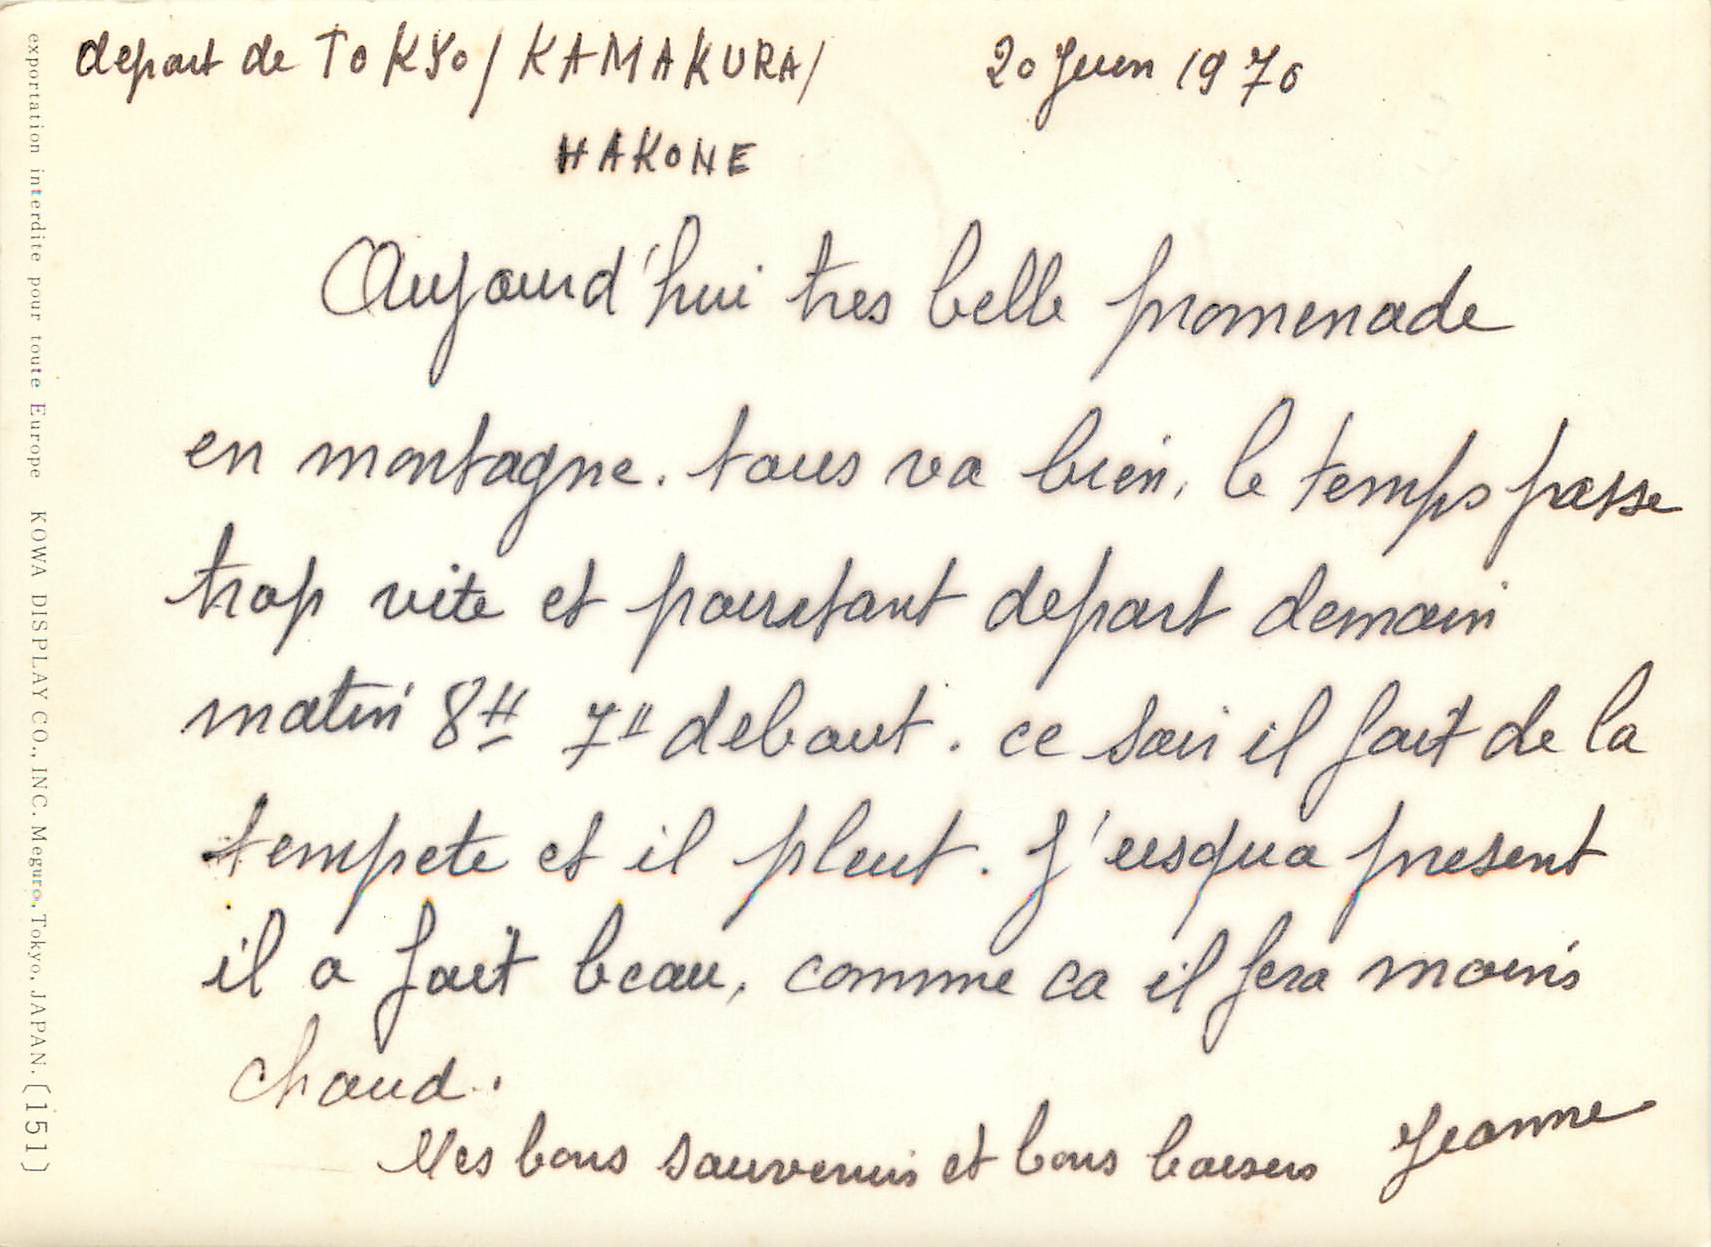 depart de TOKYO/KAMAKURA/ 20 Juin 1970
HAKONE
Aujourd'hui tres belle promenade
en montagne. tous va bien, le temps passe
trop vite et pourtant depart demain
matin 8H 7H debout. ce soir il fait de la
tempete et il pleut. J'usqua present
il a fait beau, comme ca il fera moins
chaud.
Mes bons souvenirs et bons baisers Jeanne
exportation interdite pour toute Europe KOWA DISPLAY CO., INC. Meguro, Tokyo, JAPAN. [151]